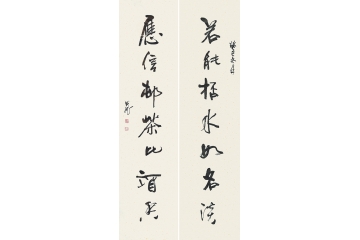 若能杯水如名淡
應信村茶比酒香